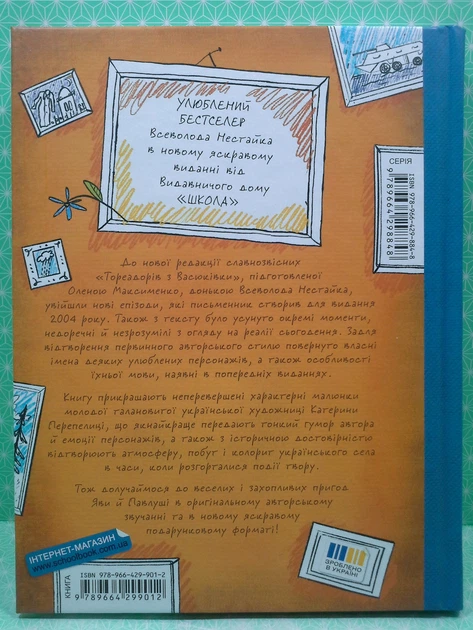 УЛЮБЛЕНИЙ
БЕСТСЕЛЕР
Всеволода Нестайка
в новому яскравому
виданні від
Видавничого дому
«ШКОЛА»
СЕРІЯ
ISBN 978-966-429-884-8
9789664298848
До нової редакції славнозвісних
«Тореадорів з Васюківки», підготовленої
Оленою Максименко, донькою Всеволода Нестайка,
увійшли нові епізоди, які письменник створив для видання
2004 року. Також з тексту було усунуто окремі моменти,
недоречні й незрозумілі з огляду на реалії сьогодення. Задля
відтворення первинного авторського стилю повернуто власні
імена деяких улюблених персонажів, а також особливості
їхньої мови, наявні в попередніх виданнях.
Книгу прикрашають неперевершені характерні малюнки
молодої талановитої української художниці Катерини
Перепелиці, що якнайкраще передають тонкий гумор автора
й емоції персонажів, а також з історичною достовірністю
відтворюють атмосферу, побут і колорит українського села
в часи, коли розгорталися події твору.
Тож долучаймося до веселих і захопливих пригод
Яви й Павлуші в оригінальному авторському
звучанні та в новому яскравому
подарунковому форматі!
ІНТЕРНЕТ-МАГАЗИН
www.schoolbook.com.ua
КНИГА
ISBN 978-966-429-901-2
9789664299012
ЗРОБЛЕНО
В УКРАЇНІ